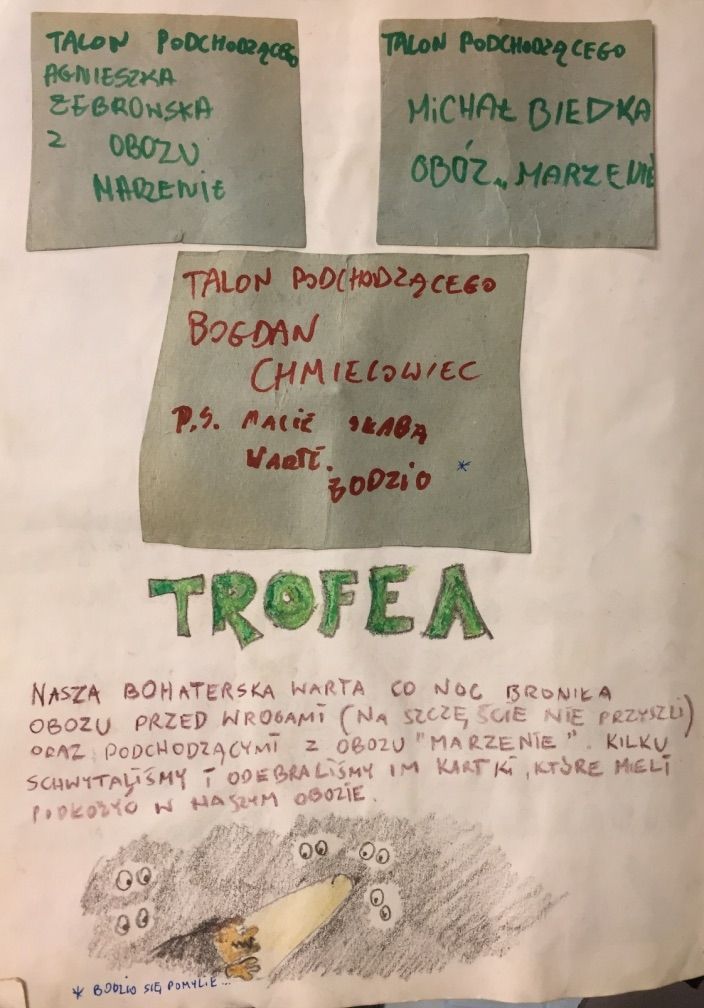 TALON PODCHODZĄCEGO
AGNIESZKA
ŻEBROWSKA
Z OBOZU
MARZENIE
TALON PODCHODZĄCEGO
MICHAŁ BIEDKA
OBÓZ „MARZENIE
TALON PODCHODZĄCEGO
BOGDAN
CHMIELOWIEC
P.S. MACIE SŁABĄ
WARTĘ.
BODZIO *
TROFEA
NASZA BOHATERSKA WARTA CO NOC BRONIŁA
OBOZU PRZED WROGAMI (NA SZCZĘŚCIE NIE PRZYSZLI)
ORAZ PODCHODZĄCYMI Z OBOZU "MARZENIE". KILKU
SCHWYTALIŚMY I ODEBRALIŚMY IM KARTKI, KTÓRE MIELI
PODŁOŻYĆ W NASZYM OBOZIE.
* BODZIO SIĘ POMYLIŁ...